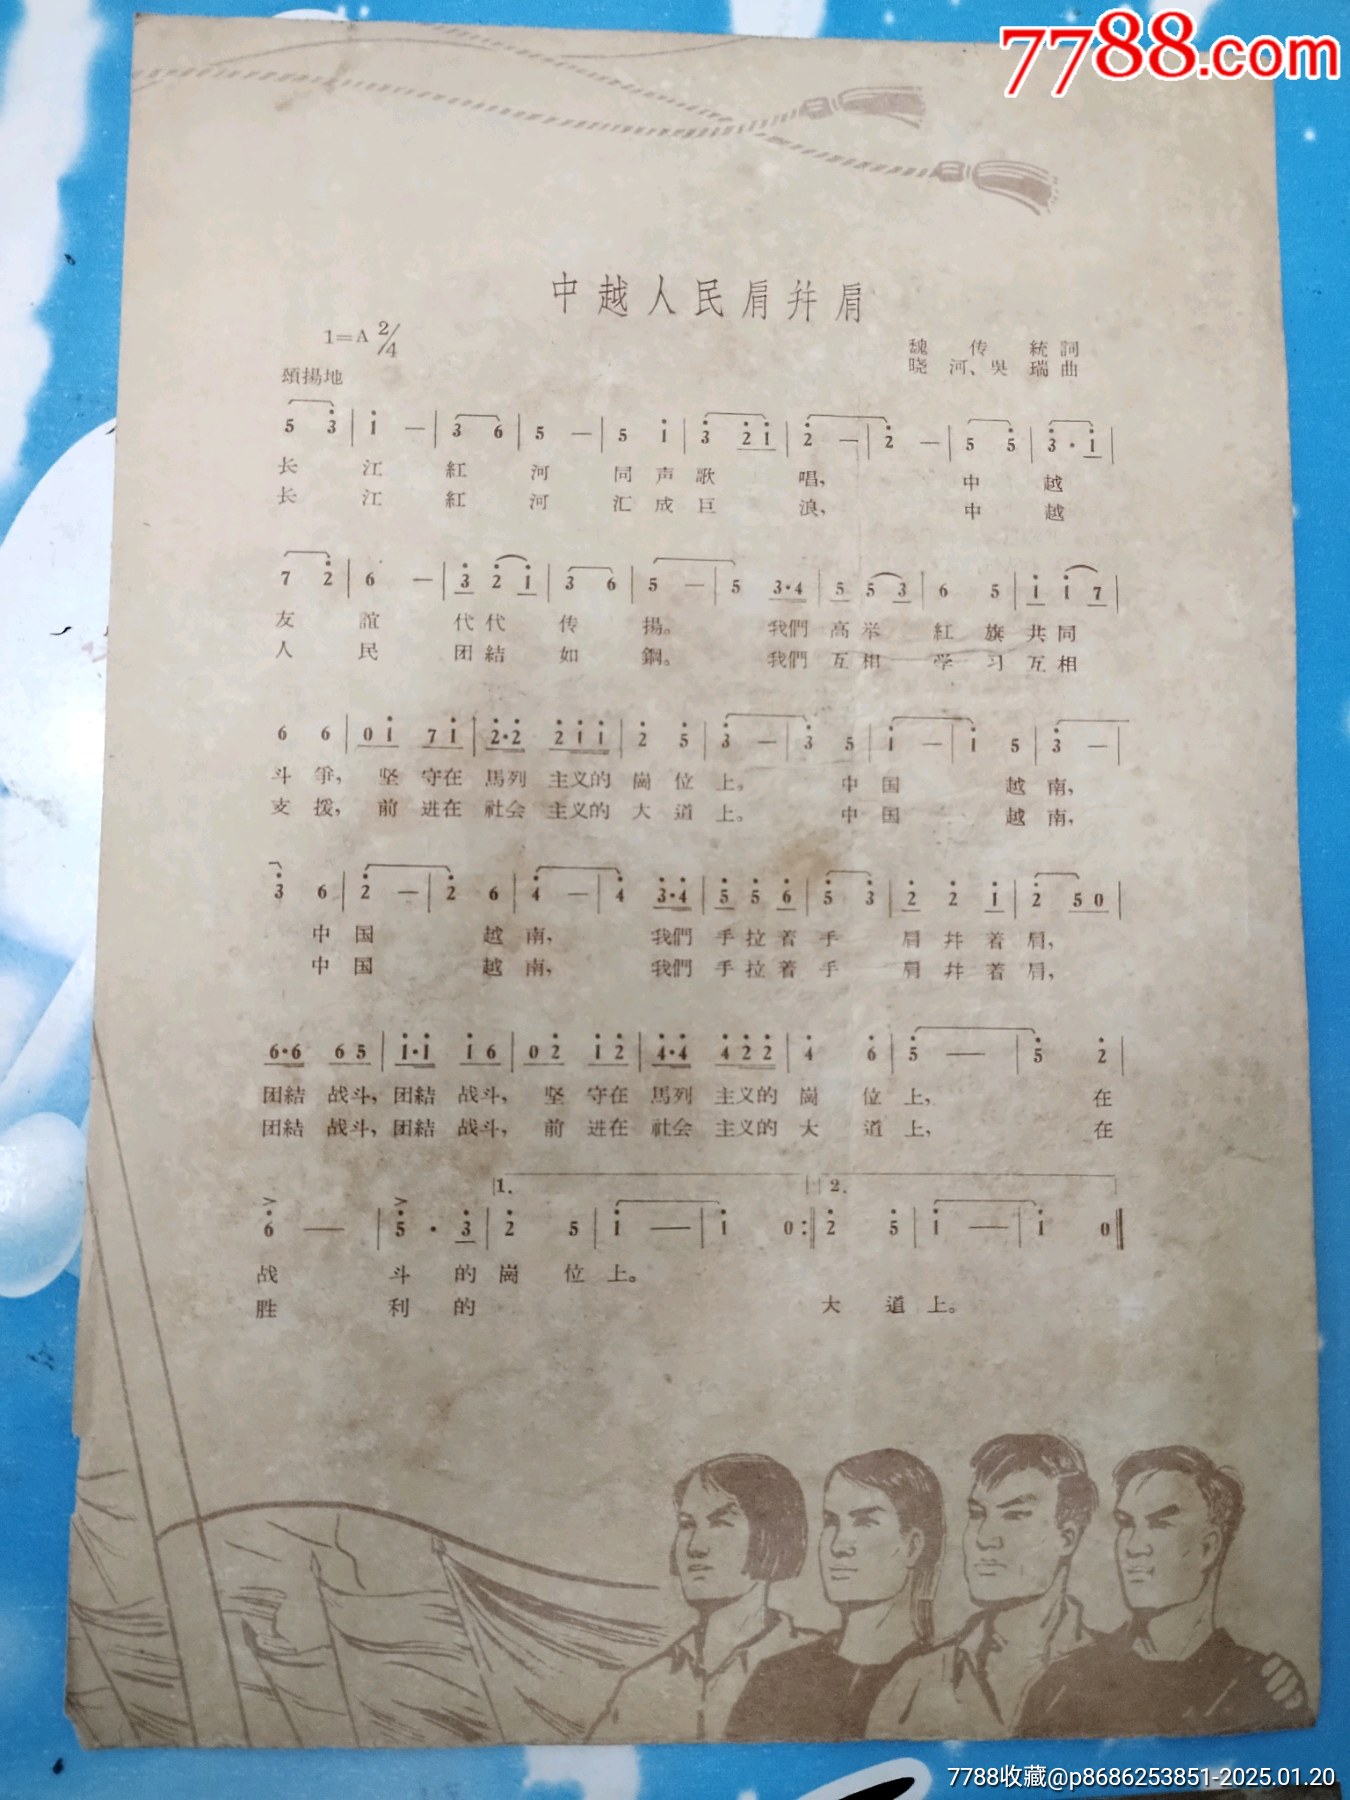 7788.com
中越人民肩并肩
1=A 2/4
魏传統詞
頌揚地
晓河、吳瑞曲
5 3̇ | 1̇ — | 3 6 | 5 — | 5 1̇ | 3̇ 2̇1̇ | 2̇ — | 2̇ — | 5 5̇ | 3̇·1̇ |
长江紅河同声歌唱,中越
长江紅河汇成巨浪,中越
7 2̇ | 6 — | 3̇ 2̇ 1̇ | 3 6 | 5 — | 5 3·4 | 5 5 3 | 6 5 | 1̇ 1̇ 7 |
友誼代代传揚。我們高举紅旗共同
人民团結如鋼。我們互相学习互相
6 6 | 0 1̇ 7 1̇ | 2̇·2̇ 2̇ 1̇ 1̇ | 2̇ 5̇ | 3̇ — | 3̇ 5 | 1̇ — | 1̇ 5 | 3̇ — |
斗爭,坚守在馬列主义的崗位上。中国越南,
支援,前进在社会主义的大道上。中国越南,
3̇ 6 | 2̇ — | 2̇ 6 | 4̇ — | 4̇ 3̇·4̇ | 5̇ 5̇ 6̇ | 5̇ 3̇ | 2̇ 2̇ 1̇ | 2̇ 5 0 |
中国越南,我們手拉着手肩并着肩,
中国越南,我們手拉着手肩并着肩,
6·6 6 5 | 1̇·1̇ 1̇ 6 | 0 2̇ 1̇ 2̇ | 4̇·4̇ 4̇ 2̇ 2̇ | 4̇ 6̇ | 5̇ — | 5̇ 2̇ |
团結战斗,团結战斗,坚守在馬列主义的崗位上,在
团結战斗,团結战斗,前进在社会主义的大道上,在
1. 2.
6̇ — | 5̇ · 3̇ | 2̇ 5 | 1̇ — | 1̇ 0 :‖ 2̇ 5̇ | 1̇ — | 1̇ 0 ‖
战斗的崗位上。
胜利的大道上。
7788收藏@p8686253851-2025.01.20